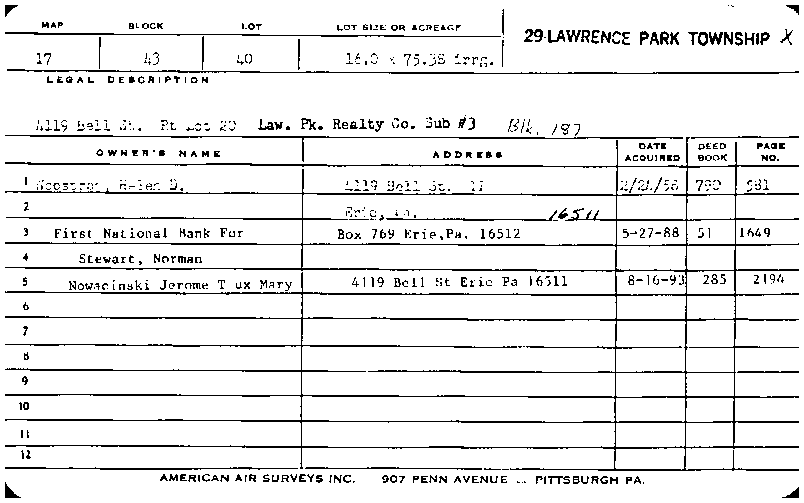 MAP BLOCK LOT LOT SIZE OR ACREAGE 29-LAWRENCE PARK TOWNSHIP X
17 43 40 16.0 x 75.38 irrg.
LEGAL DESCRIPTION
4119 Bell St. Pt Lot 20 Law. Pk. Realty Co. Sub #3 Blk. 187
OWNER'S NAME ADDRESS DATE ACQUIRED DEED BOOK PAGE NO.
1 D. 4119 Bell St. 581
2 Erie, Pa. 16511
3 First National Bank For Box 769 Erie,Pa. 16512 5-27-88 51 1649
4 Stewart, Norman
5 Nowacinski Jerome T ux Mary 4119 Bell St Erie Pa 16511 8-16-93 285 2194
6
7
8
9
10
11
12
AMERICAN AIR SURVEYS INC. 907 PENN AVENUE ... PITTSBURGH PA.